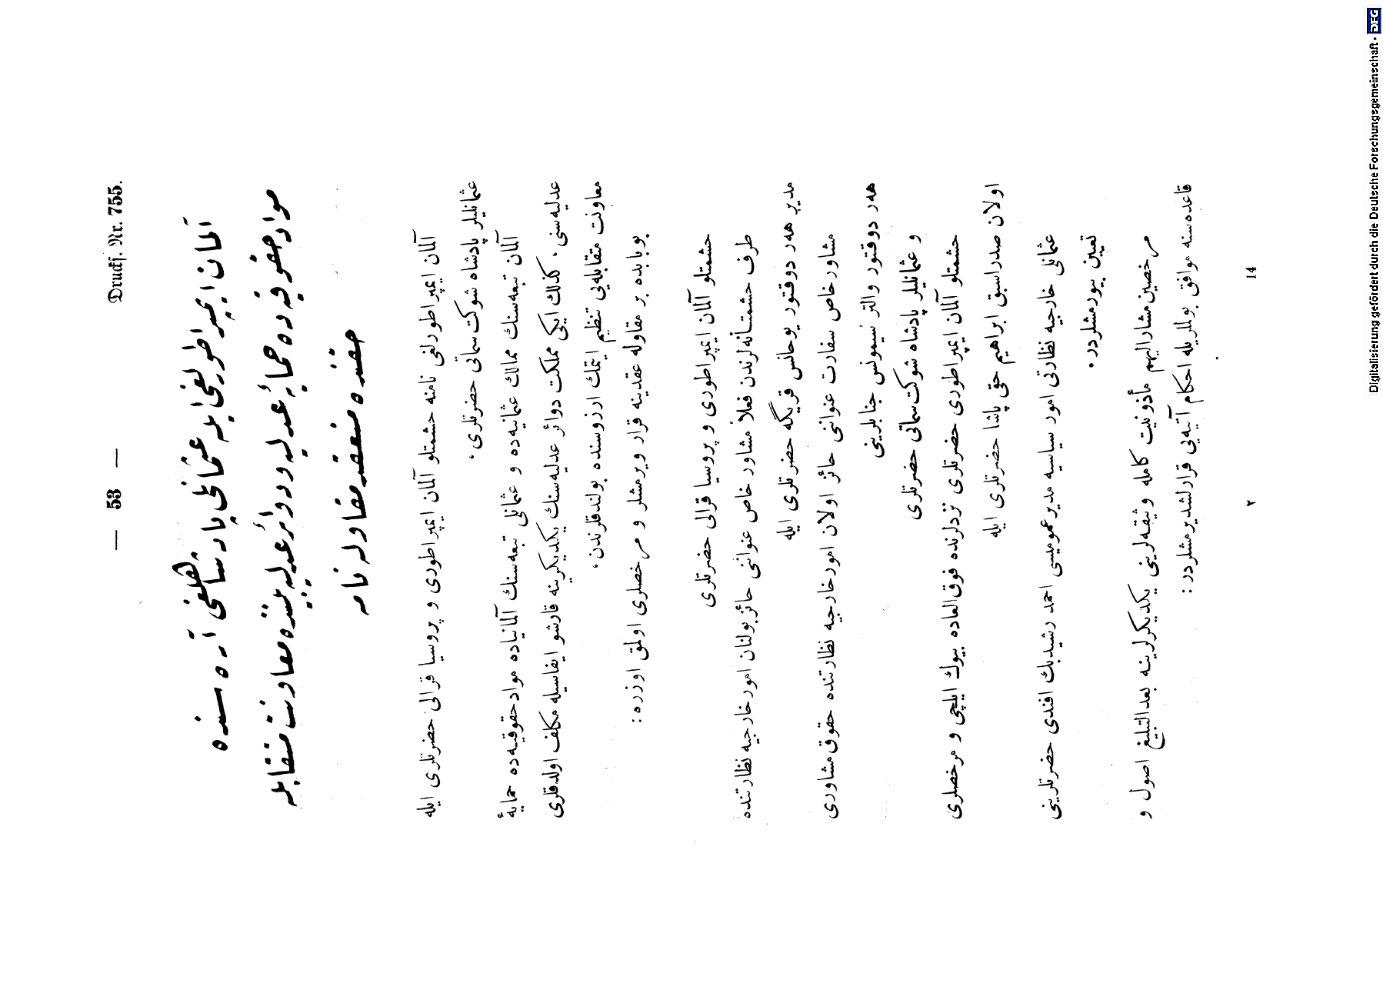 — 53 —
Druckf. Nr. 755.
آلمان ایمپراطورلغی ایله عثمانلی پادشاهلغی آره سنده
مواد حقوقیه ده حمایهٔ عدلیه و دوائر عدلیه بیننده معاونت متقابله
حقنده منعقد مقاوله نامه
آلمان ایمپراطورلغی نامنه حشمتلو آلمان ایمپراطوری و پروسیا قرالی حضرتلری ایله
عثمانلیلر پادشاه شوکت سماتی حضرتلری.
آلمان تبعه سنك ممالك عثمانیه ده و عثمانلی تبعه سنك آلمانیاده مواد حقوقیه ده حمایهٔ
عدلیه سنی، کذلك ایکی مملکت دوائر عدلیه سنك یکدیکرینه قارشو ایفاسیله مکلف اولدقلری
معاونت متقابله یی تنظیم ایتمك ارزوسنده بولندقلرندن،
بوبابده بر مقاوله عقدینه قرار ویرمشلر و مرخصلری اولمق اوزره:
حشمتلو آلمان ایمپراطوری و پروسیا قرالی حضرتلری
طرف حشمتانه لرندن فعلا مشاور خاص عنوانی حائز بولنان امور خارجیه نظارتنده
مدیر هه ر دوقتور یوحانس قریگه حضرتلری ایله
مشاور خاص سفارت عنوانی حائز اولان امور خارجیه نظارتنده حقوق مشاوری
هه ر دوقتور والتر سیمونس جنابلرینی
و عثمانلیلر پادشاه شوکت سماتی حضرتلری
حشمتلو آلمان ایمپراطوری حضرتلری نزدلرنده فوق العاده بیوك ایلچی و مرخصلری
اولان صدر اسبق ابراهیم حقی پاشا حضرتلری ایله
عثمانلی خارجیه نظارتی امور سیاسیه مدیر عمومیسی احمد رشید بك افندی حضرتلرینی
تعیین بیورمشلردر.
مرخصین مشارالیهم مأذونیت کامله وثیقه لرینی یکدیکرلرینه بعد التبلیغ اصول و
قاعده سنه موافق بوللریله احکام آتیه یی قرارلشدیرمشلردر:
14
٢
Digitalisierung gefördert durch die Deutsche Forschungsgemeinschaft - DFG